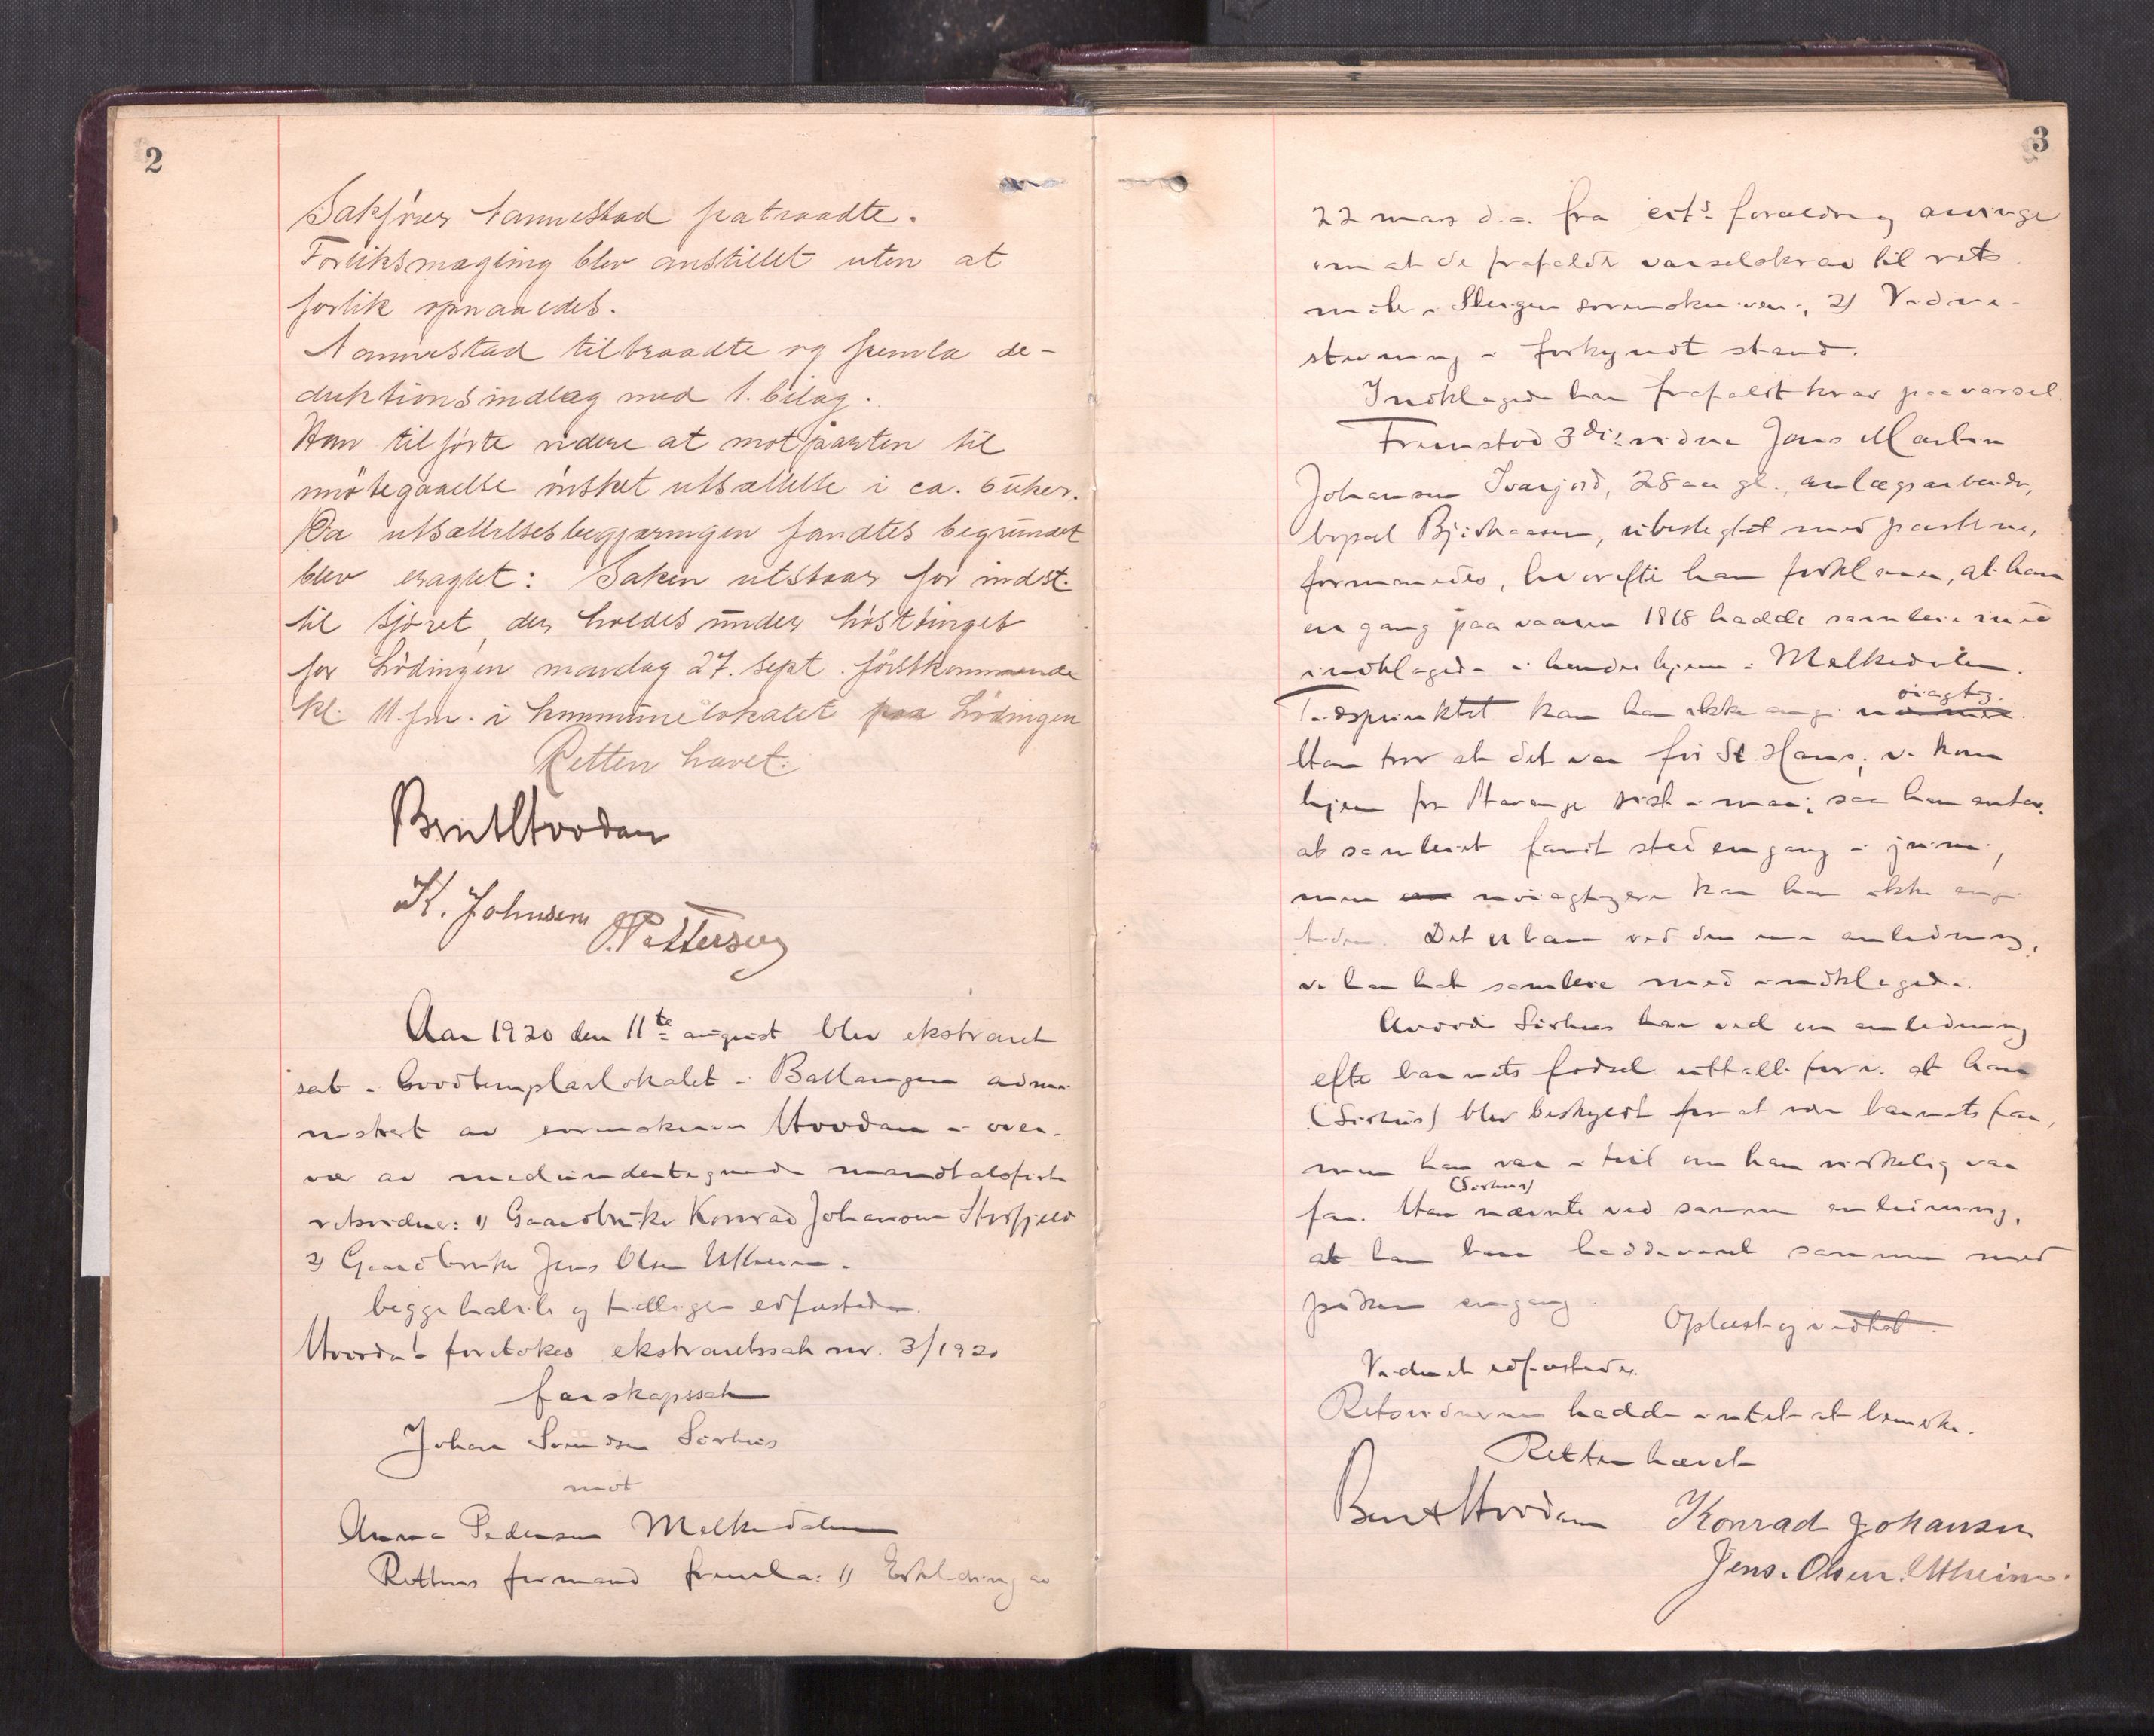 2
Sakfører Nannestad patraadte.
Forliksmægling blev anstillet uten at
forlik opnaaedes.
Nannestad tilbraadte og fremla de-
duktionsindlæg med 1. bilag.
Han tilførte videre at motparten til
imøtegaaelse ønsket utsættelse i ca. 6 uker.
Da utsættelsesbegjæringen fandtes begrundet
blev eragtet: Saken utstaar for indst.
til sjøret, der holdes under høsttinget
for Lødingen mandag 27. sept. førstkommende
kl. 11. fm. i kommunelokalet paa Lødingen
Retten hævet.
Bernt Hovdan
K. Johnsen
J. Pettersen
Aar 1920 den 11te august blev ekstraret
sat i Godtemplarlokalet i Ballangen admi-
nistrert av sorenskriver Hovdan i over-
vær av medundertegnede mandtalsførte
retsvidner: 1) Gaardbruker Konrad Johansen
2) Gaardbruker Jens Olsen Utheim.
begge habile og tidligere edfæstede.
Hvorda! foretokes ekstraretssak nr. 3/1920
farskapssak
Johan Svendsen Sørhus
mot
Anna Pedersen Melkedalen
Rettens formand fremla: 1) Erklæring av
3
22 mars d.a. fra cit.s forældre og anvinge
om at de frafalder varselskrav til rets
møte i Steigen sorenskriveri, 2) Vidne-
stevning i forkyndt stand.
Indklagede har frafaldt krav paa varsel.
Fremstod 3die vidne Jens Martin
Johansen Ivarjord, 28 aar gl., anlægsarbeider,
bopæl Bjørkaasen, ubeslegtet med partene,
formanedes, hvorefter han forklarer, at han
en gang paa vaaren 1918 hadde samleie med
indklagede i hendes hjem i Melkedalen.
øiagtig.
Tidspunktet kan han ikke angi nærmere.
Han tror at det var før St. Hans; v. kom
hjem fra Stavanger sist i mai; saa han antar,
at samleiet fandt sted en gang i juni,
men nøiagtigere kan han ikke angi
tiden. Det er bare ved den ene anledning,
v. har hat samleie med indklagede.
Sørhus har ved en anledning
efter barnets fødsel uttalt for v. at han
(Sørhus) blev beskyldt for at være barnets far,
men han var i tvil om han virkelig var
(Sørhus)
far. Han nævnte ved samme anledning,
at han bare hadde været sammen med
piken en gang.
Oplæst og vedtat.
Vidnet edfæstedes.
Retsvidnerne hadde intet at bemerke.
Retten hævet
Bernt Hovdan
Konrad Johansen
Jens. Olsen. Utheim.